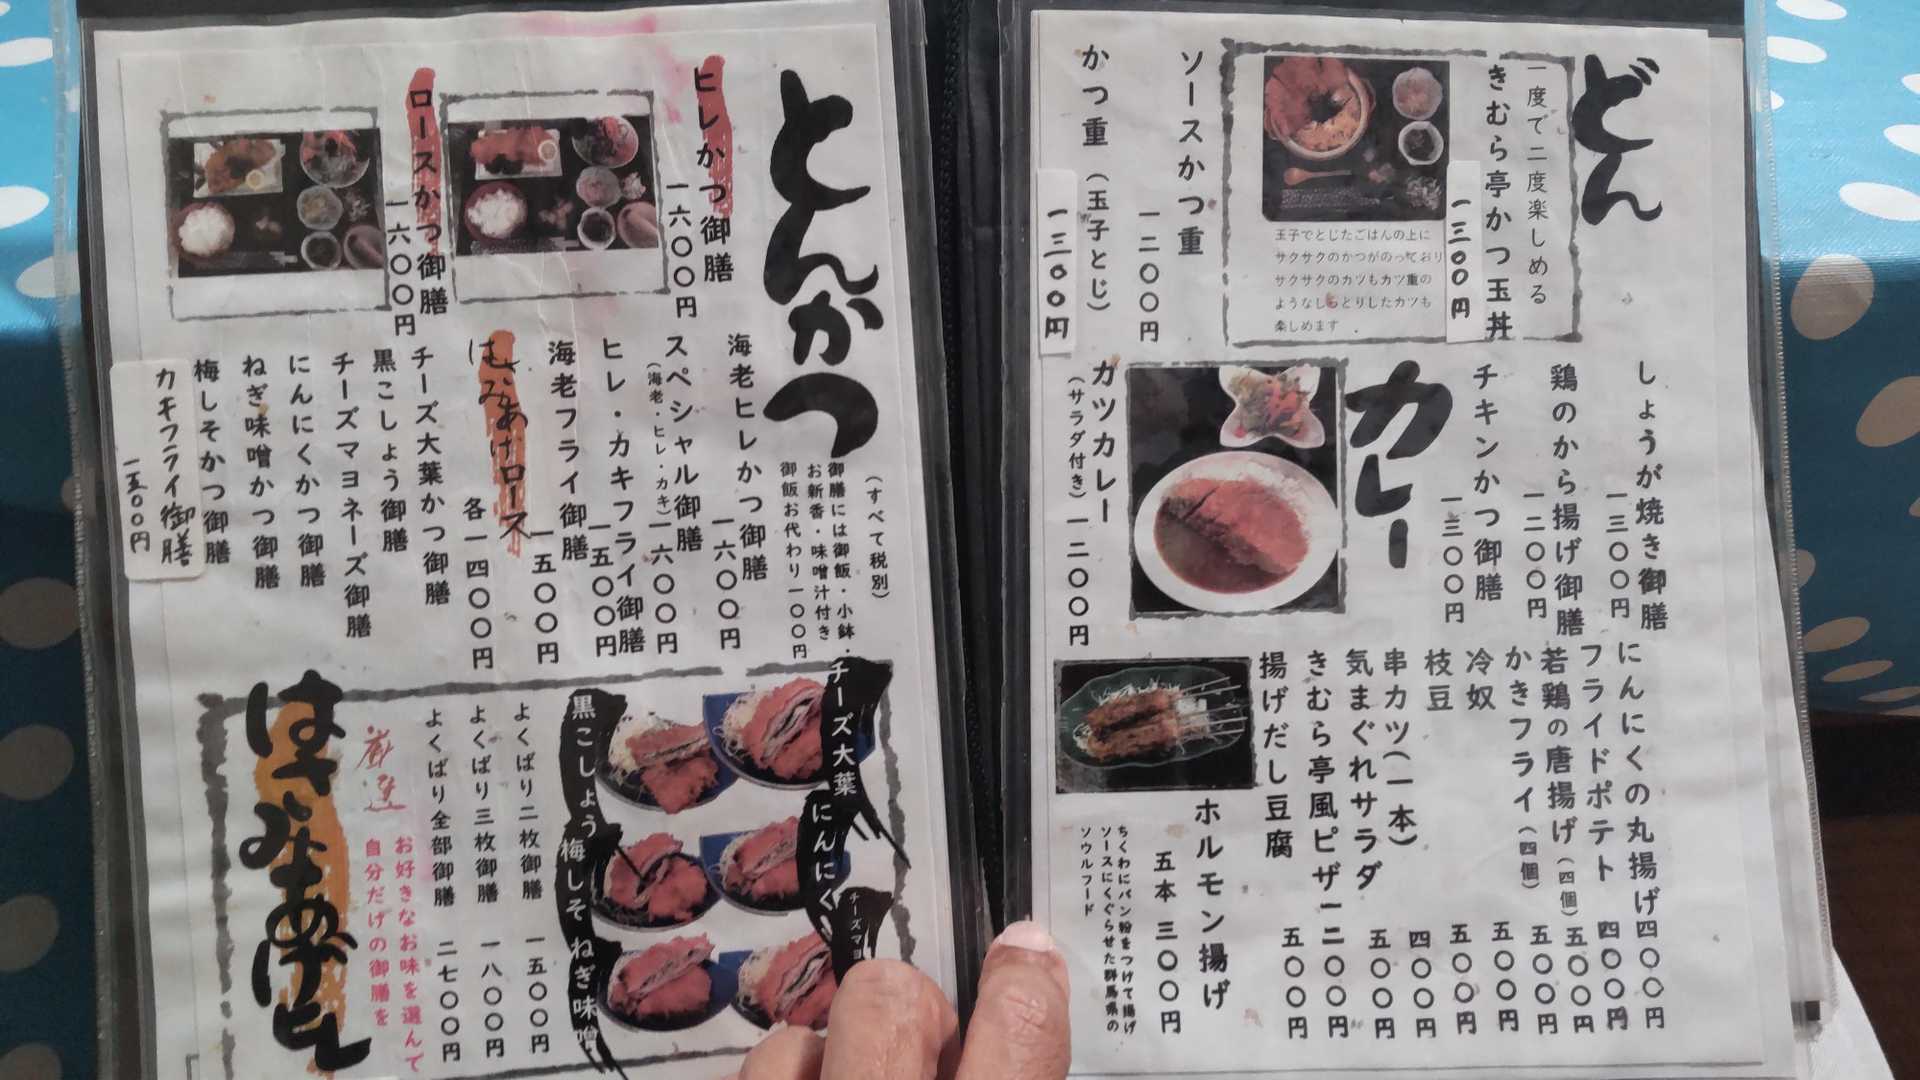 どん
一度で二度楽しめる
きむら亭かつ玉丼
一三〇〇円
玉子でとじたごはんの上に
サクサクのかつがのっており
サクサクのカツもカツ重の
ようなしっとりしたカツも
楽しめます
ソースかつ重
一二〇〇円
かつ重(玉子とじ)
一三〇〇円
しょうが焼き御膳
一三〇〇円
鶏のから揚げ御膳
一二〇〇円
チキンかつ御膳
一三〇〇円
カレー
カツカレー
(サラダ付き)一二〇〇円
にんにくの丸揚げ 四〇〇円
フライドポテト 四〇〇円
若鶏の唐揚げ(四個) 五〇〇円
かきフライ(四個) 五〇〇円
冷奴 五〇〇円
枝豆 五〇〇円
串カツ(一本) 四〇〇円
気まぐれサラダ 五〇〇円
きむら亭風ピザ 一二〇〇円
揚げだし豆腐 五〇〇円
ホルモン揚げ
五本 三〇〇円
ちくわにパン粉をつけて揚げ
ソースにくぐらせた群馬県の
ソウルフード
とんかつ
(すべて税別)
御膳には御飯・小鉢・
お新香・味噌汁付き
御飯お代わり一〇〇円
ヒレかつ御膳
一六〇〇円
ロースかつ御膳
一六〇〇円
海老ヒレかつ御膳
一六〇〇円
スペシャル御膳
(海老・ヒレ・カキ)一六〇〇円
ヒレ・カキフライ御膳
一五〇〇円
海老フライ御膳
一五〇〇円
はさみあげロース
各一四〇〇円
チーズ大葉かつ御膳
黒こしょう御膳
チーズマヨネーズ御膳
にんにくかつ御膳
ねぎ味噌かつ御膳
梅しそかつ御膳
カキフライ御膳
一五〇〇円
チーズ大葉
にんにく
チーズマヨ
黒こしょう
梅しそ
ねぎ味噌
よくばり二枚御膳 一五〇〇円
よくばり三枚御膳 一八〇〇円
よくばり全部御膳 二七〇〇円
厳選
お好きなお味を選んで
自分だけの御膳を
はさみあげ